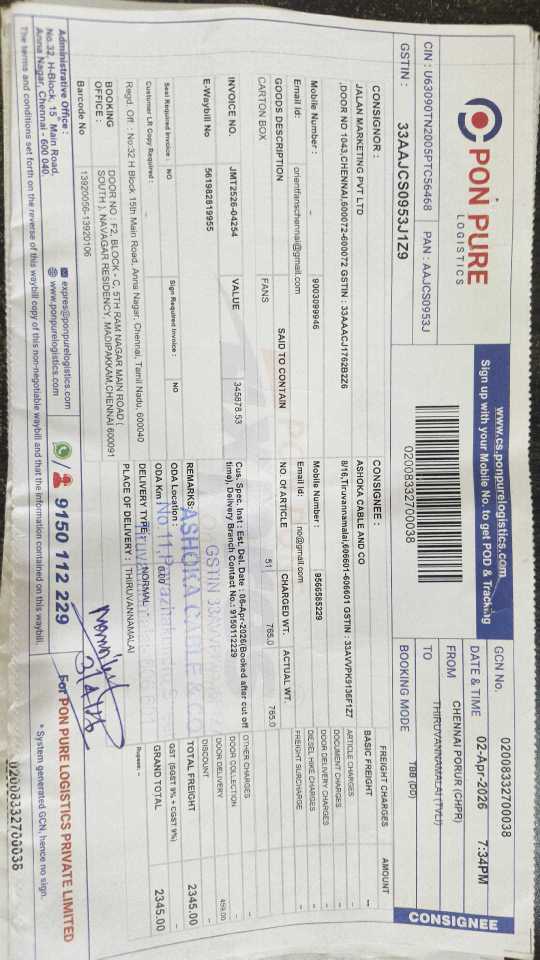 PON PURE
LOGISTICS
CIN : U63090TN2005PTC56468 PAN : AAJCS0953J
GSTIN : 33AAJCS0953J1Z9
www.cs.ponpurelogistics.com
Sign up with your Mobile No. to get POD & Tracking
02008332700038
GCN No. 02008332700038
DATE & TIME 02-Apr-2026 7:34PM
FROM CHENNAI PORUR (CHPR)
TO THIRUVANNAMALAI (TVLI)
BOOKING MODE TBB (DD)
CONSIGNEE
CONSIGNOR :
JALAN MARKETING PVT LTD
,DOOR NO 1043,CHENNAI,600072-600072 GSTIN : 33AAACJ1762B2Z6
Mobile Number : - 9003099946
Email Id: orientfanschennai@gmail.com
CONSIGNEE :
ASHOKA CABLE AND CO
8/16,Tiruvannamalai,606601-606601 GSTIN : 33AVVPK9136F1Z7
Mobile Number : 9566585229
Email Id: no@gmail.com
GOODS DESCRIPTION SAID TO CONTAIN NO. OF ARTICLE CHARGED WT. ACTUAL WT.
CARTON BOX FANS 51 765.0 765.0
INVOICE NO. JMT2526-04254 VALUE 345878.53
E-Waybill No 561982819955
Cus. Spec. Inst : Est. Del. Date : 06-Apr-2026(Booked after cut off
time), Delivery Branch Contact No.: 9150112229
Seal Required Invoice : NO Sign Required Invoice : NO
Customer LR Copy Required : -
REMARKS:
ODA Location :
ODA Km : 0.00
DELIVERY TYPE : NORMAL
PLACE OF DELIVERY : THIRUVANNAMALAI
ASHOKA CABLE &
GSTIN 33
No 11,
Regd. Off : No:32 H Block 15th Main Road, Anna Nagar, Chennai, Tamil Nadu, 600040
BOOKING OFFICE : DOOR NO : F2, BLOCK - C, 5TH RAM NAGAR MAIN ROAD (
SOUTH ), NAVAGAR RESIDENCY, MADIPAKKAM,CHENNAI 600091
Barcode No 13920056-13920106
FREIGHT CHARGES AMOUNT
BASIC FREIGHT --
ARTICLE CHARGES -
DOCUMENT CHARGES -
DOOR DELIVERY CHARGES -
DIESEL HIKE CHARGES -
FREIGHT SURCHARGE -
OTHER CHARGES -
DOOR COLLECTION -
DOOR DELIVERY 459.00
DISCOUNT -
TOTAL FREIGHT 2345.00
GST (SGST 9% + CGST 9%) -
GRAND TOTAL 2345.00
For PON PURE LOGISTICS PRIVATE LIMITED
* System generated GCN, hence no sign
Administrative Office :
No.32, H-Block, 15 Main Road,
Anna Nagar, Chennai - 600 040.
expres@ponpurelogistics.com
www.ponpurelogistics.com
9150 112 229
The terms and conditions set forth on the reverse of this waybill copy of this non-negotiable waybill and that the information contained on this waybill
02008332700038